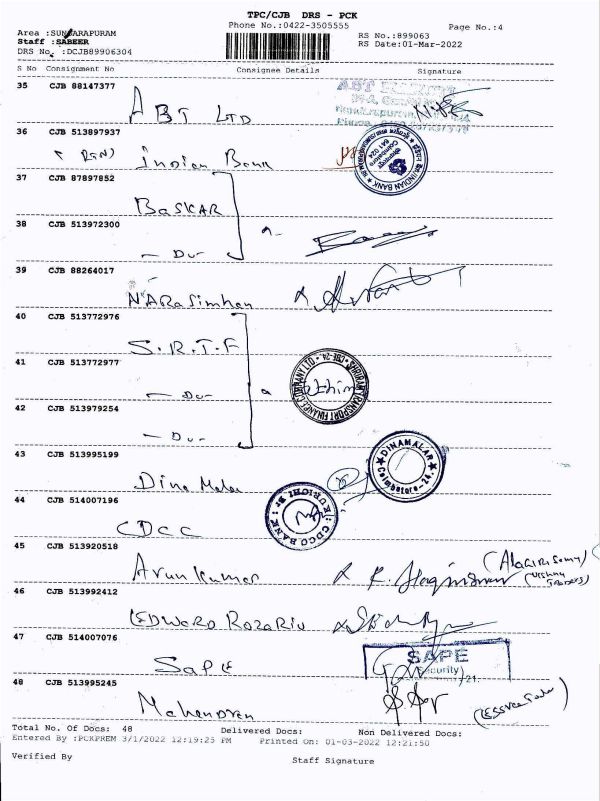 TPC/CJB DRS - PCK
Phone No.:0422-3505555
Page No.:4
Area :SUNDARAPURAM
Staff :SABEER
DRS No. :DCJB89906304
RS No.:899063
RS Date:01-Mar-2022
S No Consignment No Consignee Details Signature
35 CJB 88147377
ABT LTD
36 CJB 513897937
Indian Bank
INDIAN BANK
37 CJB 87897852
BASKAR
38 CJB 513972300
— Do -
39 CJB 88264017
NARASimhan
40 CJB 513772976
S.R.T.F
SHRIRAM TRANSPORT FINANCE COMPANY LTD. CBE-24
41 CJB 513772977
— Do -
42 CJB 513979254
— Do -
43 CJB 513995199
Dina Malar
DINAMALAR
Coimbatore-24.
44 CJB 514007196
CDCC
CDCO BANK : KURICHI Br
45 CJB 513920518
Arun Kumar
(Alagiri Samy)
(Vishnu Traders)
46 CJB 513992412
EDWARD ROZARIO
47 CJB 514007076
SAPE
SAPE
Security
21.
48 CJB 513995245
Mahendren
Total No. Of Docs: 48 Delivered Docs: Non Delivered Docs:
Entered By :PCKPREM 3/1/2022 12:19:25 PM Printed On: 01-03-2022 12:21:50
Verified By Staff Signature